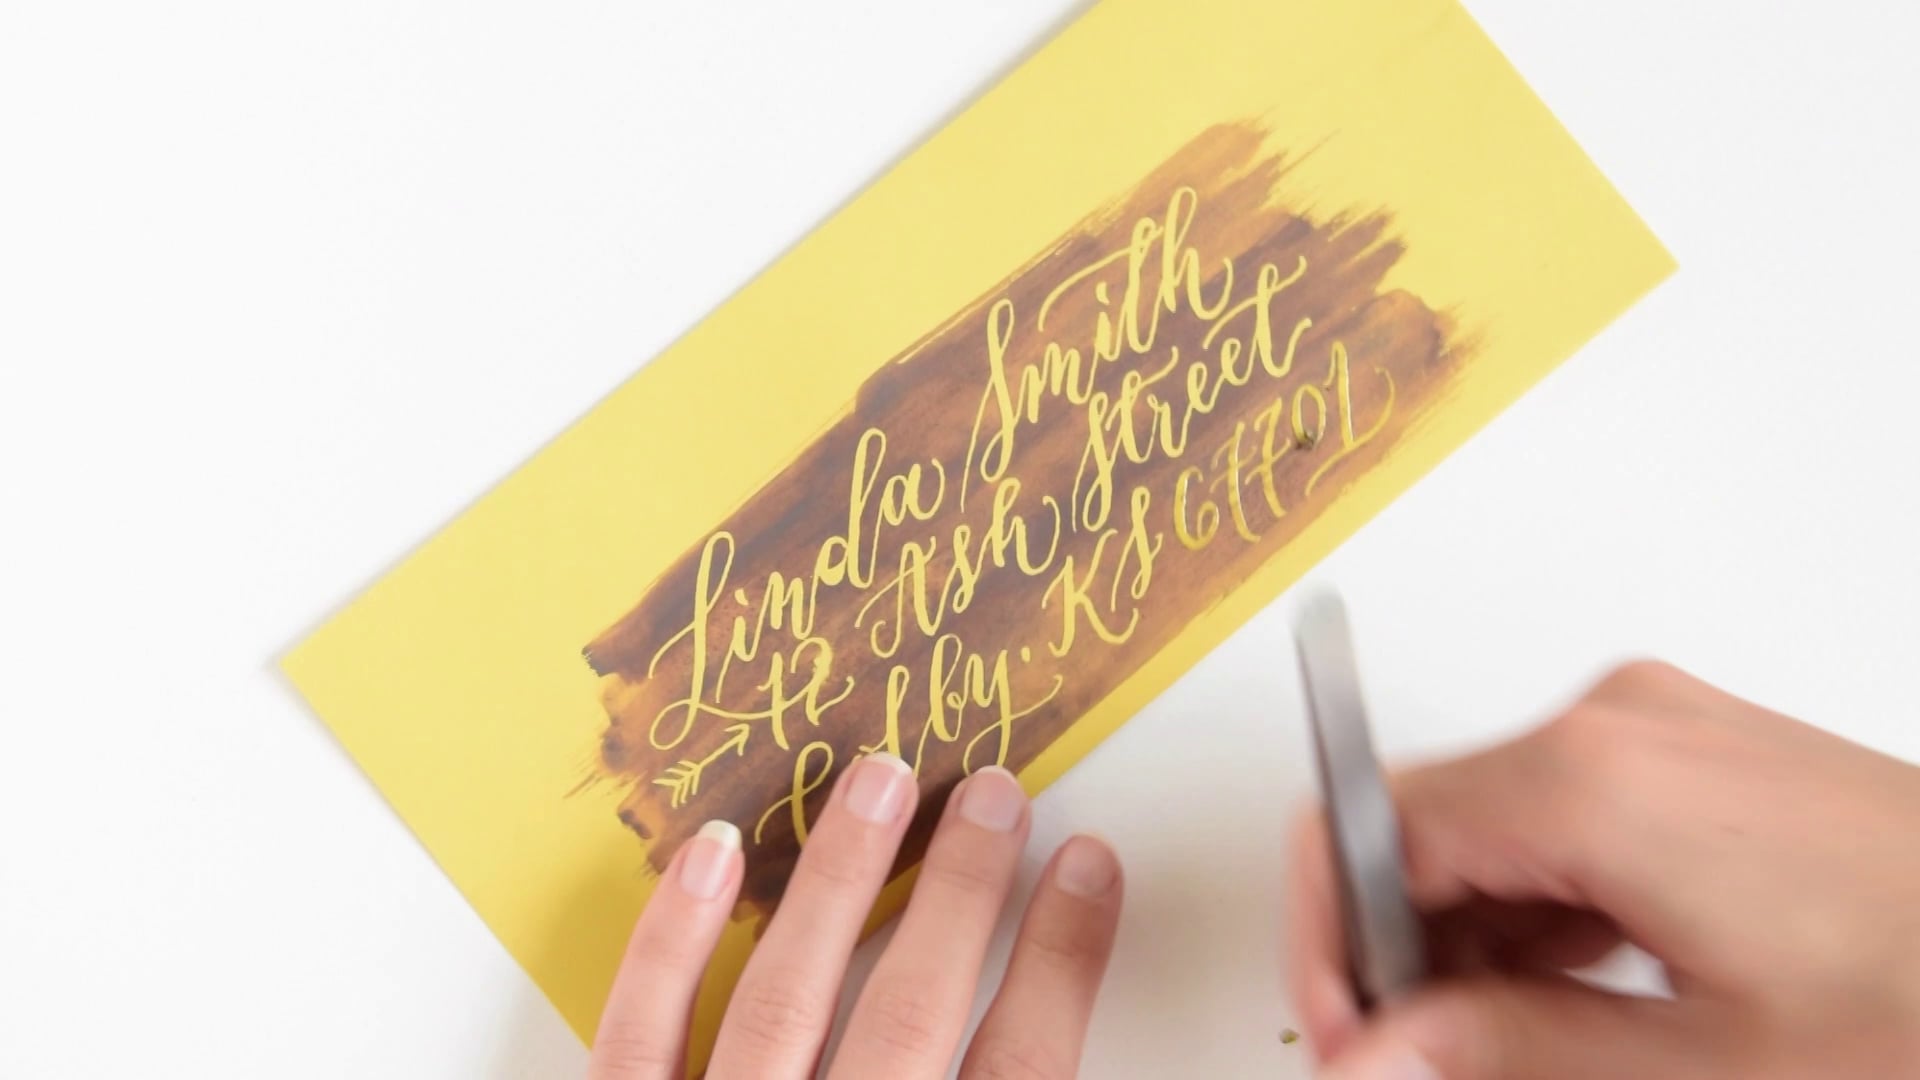 Linda Smith
12 Ash Street
Colby. KS 67701